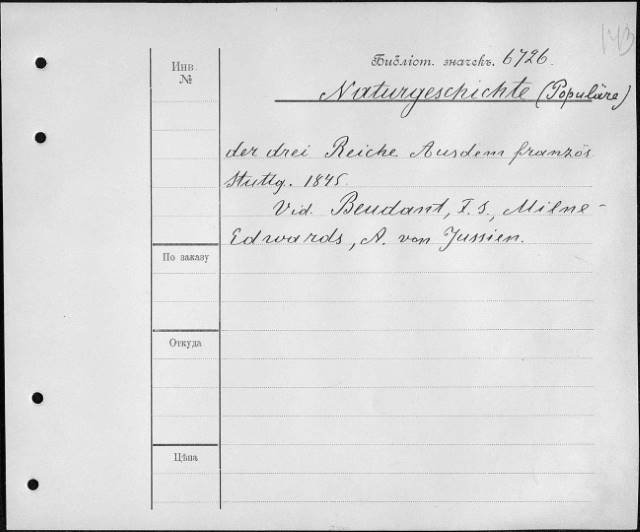 143
Инв.
№
Библіот. значекъ. 6726.
Naturgeschichte (Populäre)
der drei Reiche Ausdem französ
Stuttg. 1845.
Vid. Beudant, F. S., Milne-
Edwards, A. von Jussien.
По заказу
Откуда
Цѣна